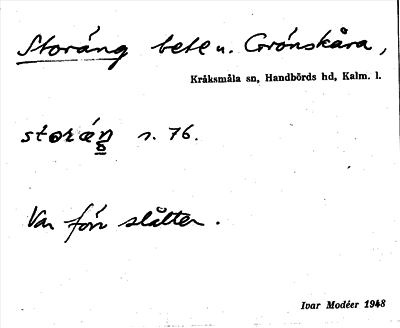 Storäng bete u. Grönskåra,
Kråksmåla sn, Handbörds hd, Kalm. l.
storæŋ s. 76.
Var förr slåtter.
Ivar Modéer 1948